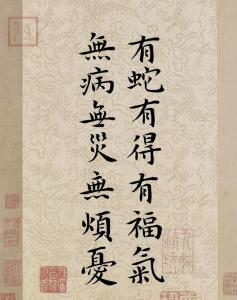 有蛇有得有福氣
無病無災無煩憂